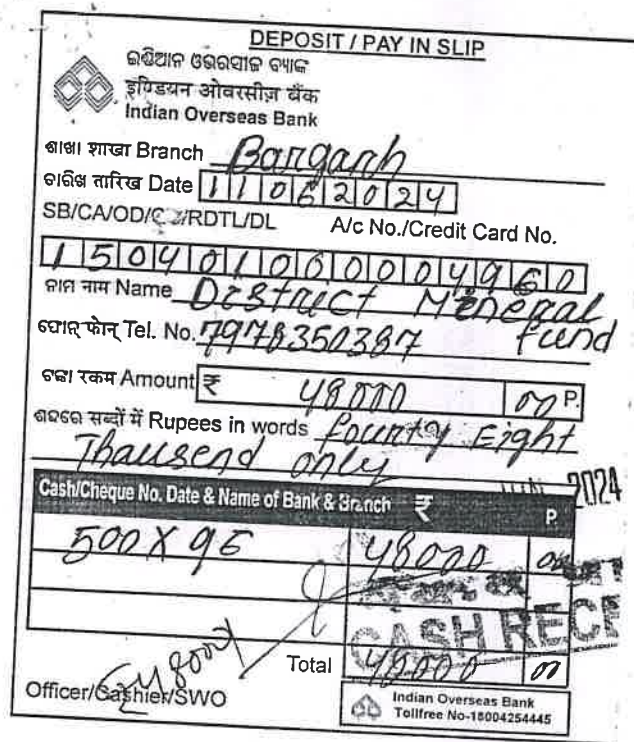 DEPOSIT / PAY IN SLIP
ଇଣ୍ଡିଆନ ଓଭରସୀଜ ବ୍ୟାଙ୍କ
इण्डियन ओवरसीज़ बैंक
Indian Overseas Bank
ଶାଖା शाखा Branch Bargarh
ତାରିଖ तारिख Date 11062024
SB/CA/OD/ /RDTL/DL A/c No./Credit Card No.
150401000004960
ନାମ नाम Name District Meneral fund
ଫୋନ୍ फोन् Tel. No. 7978350387
ଟଙ୍କା रकम Amount ₹ 48000 00 P.
ଶବ୍ଦରେ सब्दों में Rupees in words Fourty Eight
Thausend only
2024
Cash/Cheque No. Date & Name of Bank & Branch ₹ P.
500 X 96 48000 00
CASH RECE
Total 48000 00
48000/
Officer/Cashier/SWO
Indian Overseas Bank
Tollfree No-18004254445